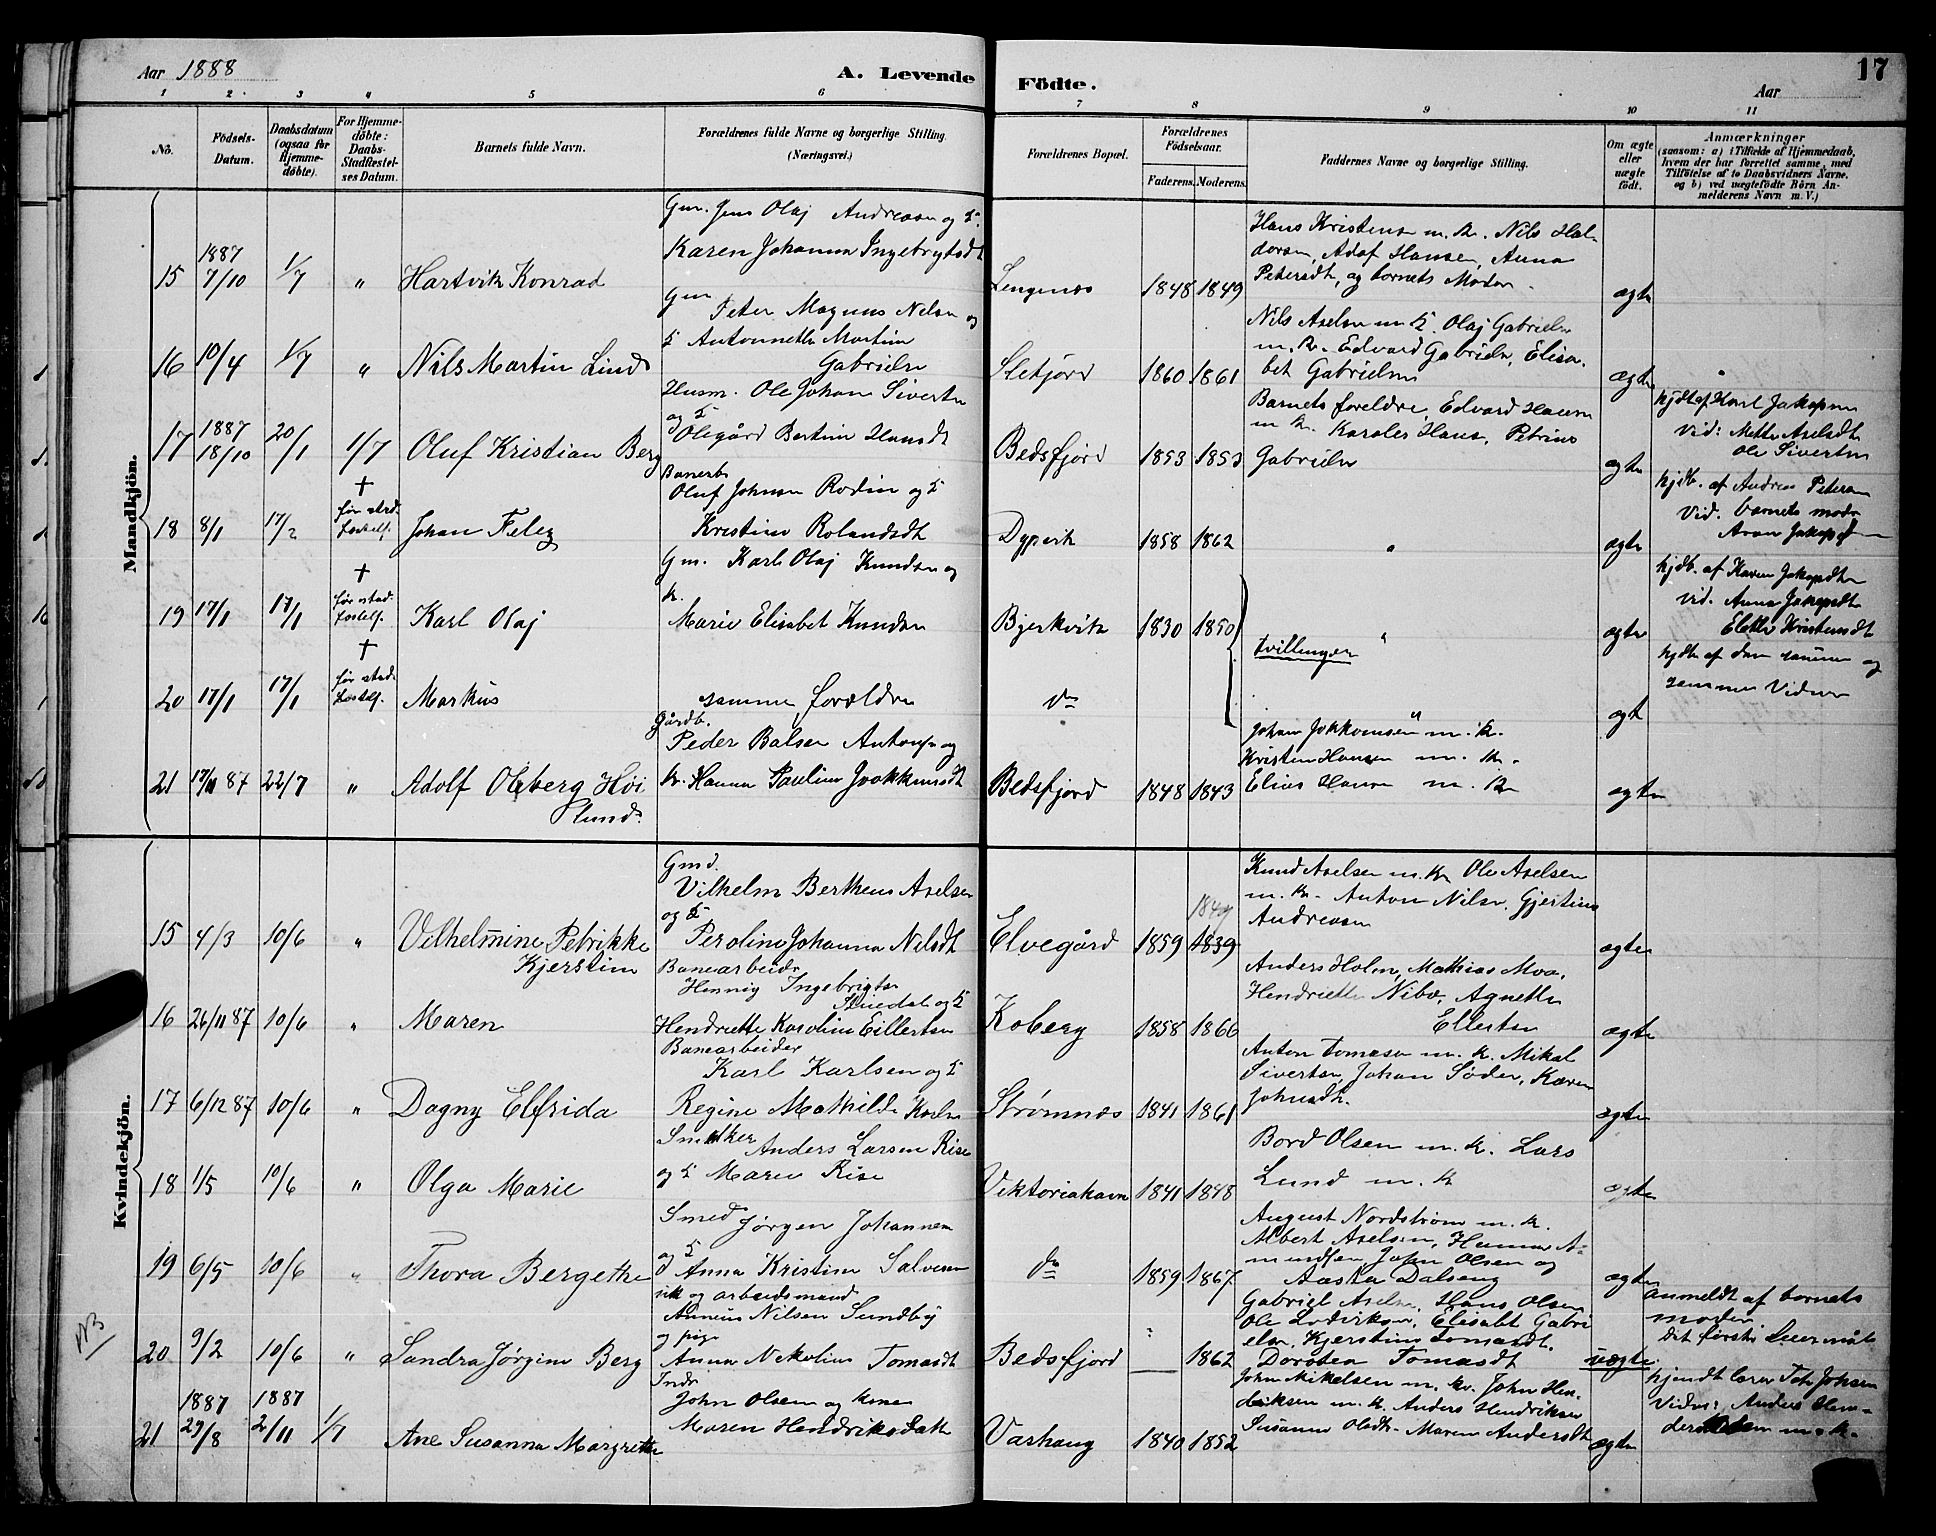 Aar 1888
A. Levende
Födte.
Aar
17
1 2 3 4 5 6 7 8 9 10 11
No.
Födsels-Datum.
Daabsdatum (ogsaa for Hjemmedöbte).
For Hjemmedöbte: Daabs-Stadfæstelses Datum.
Barnets fulde Navn.
Forældrenes fulde Navne og borgerlige Stilling. (Næringsvei.)
Forældrenes Bopæl.
Forældrenes Födselsaar.
Faderens. Moderens.
Faddernes Navne og borgerlige Stilling.
Om ægte eller uægte födt.
Anmærkninger (saasom: a) i Tilfælde af Hjemmedaab, hvem der har forrettet samme, med Tilföielse af to Daabsvidners Navne, og b) ved uægtefödte Börn Anmelderens Navn m. V.)
Mandkjön.
15 1887 7/10 1/7 " Hartvik Konrad
Gm. Jens Olaj Andreasen og
Karen Johanna Ingebrigtsdt
Lengenes 1848 1849
Hans Kristensen m. k. Nils Hal-
dorsen, Adof Hansen, Anna
Petersdt, og barnets Moder
ægte
16 10/4 1/7 " Nils Martin Lind
Gm
Peter Magnus Nilsen og
Antonnette Martine
Gabrielsn
Sletjord 1860 1861
Nils Axelsen m k. Olaj Gabrielsn
m. k. Edvard Gabrielsn, Elisa-
bet Gabrielsen
ægte
17 1887 18/10 20/1 1/7 Oluf Kristian Berg
Husm. Ole Johan Sivertsn
og
Olegård Bertine Hansdt
Bedsfjord 1853 1853
Barnets foreldre, Edvard Hansen
m k. Karoles Hans, Petrine
Gabrielsn
ægte
hjdt af Karl Jakopsen
Vid: Mette Axelsdt
Ole Sivertsn
18 8/1 17/2 † før stad-
fæstelse. Johan Feley
Banearb
Oluf Johnsen Rodin og
Kristine Rolandsdt
Dypvik 1858 1862 " ægte
hjdb. af Andreas Petersen
Vid. barnets moder
Jakopsdt
19 17/1 17/1 † før stad-
fæstelse. Karl Olaj
Gm. Karl Olaj Knudsen og
k.
Marie Elisabet Knudsen
Bjerkvik 1830 1850 " ægte
tvillinger
hjdb. af Karen Jakopsdt
vid. Anna Jakopsdt
Elette Kristensdt
20 17/1 17/1 † før stad-
fæstelse. Markus
samme forældre
do " ægt
hjdb af den samme og
samme Vidner
21 17/11 87 22/7 " Adolf Oleberg Høi
Plund
Gårdb.
Peder Balser Antonsn og
k. Hanna Pauline Joakkimsdt
Bedsfjord 1848 1843
Johan Jokkomsen m. k.
Kristen Hansen m. k.
Elias Hansen m. k
ægte
Kvindekjön.
15 4/3 10/6 " Vilhelmine Petrikke
Kjerstine
Gmd.
Vilhelm Bertheus Axelsen
og
Peroline Johanna Nilsdt
Elvegård 1859 1849 1839
Knud Axelsen m. k Ole Axelsen
m. k. Anton Nilsn, Gjertine
Andreasen
ægte
16 26/11 87 10/6 " Maren
Banearbeidr
Hennig Ingebrigtsn
og
Hendriette Karoline Eillertsen
Koberg 1858 1866
Anders Holm, Mathias Moa,
Hendriette Nibo, Agnette
Ellertsn
ægte
17 6/12 87 10/6 " Dagny Elfrida
Banearbeider
Karl Karlsen og
Regine Mathilde Karlsn
Strømnes 1841 1861
Anton Tomasen m. k. Mikal
Sivertsen, Johan Söder, Karen
Johnsdt.
ægte
18 1/5 10/6 " Olga Marie
Snedker
Anders Larsen Rise
og Maren Rise
Viktoriahavn 1841 1848
Bord Olsen m. k. Lars
Lund m. k
ægte
19 6/5 10/6 " Thora Bergethe
Smed
Jørgen Johannesen
og
Anna Kristine Salvesen
do 1859 1867
August Nordstrøm m. k.
Albert Axelsen, Hanna A-
mundsen John Olsen og
Aasta Dalseng
ægte
NB
20 9/2 10/6 " Sandra Jørgine Berg
og arbeidsmand
Anneus Nilsen Sundby
og pige
Anna Nekoline Tomasdt
Bedsfjord — 1862
Gabriel Axelsn, Hans Olsen
Ole Lodiksen, Elisabt Gabri-
elsn, Kjerstine Tomasdt.
Dorotea Tomasdt
uægte
anmeldt af barnets
moder
det første Leiermål
21 1887 29/8 1887 2/11 1/7 Ane Susanna Margrethe
Indr
John Olsen og kone
Maren Hendriksdatt
Varhaug 1840 1852
John Mikelsen m. k. John Hen-
driksen m. k. Anders Hendriksen
Susanne Olsdt. Maren Andersdt
ægte
hjemdt lærer Johnsen
Vidner: Anders Hen-
m. k.